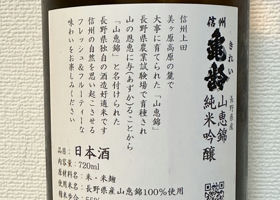 信州
亀齢
きれい
長野県産
山恵錦
純米吟醸
信州上田
美ヶ原高原の麓で
大事に育てられた「山恵錦」
長野県農業試験場で育種され
山の恩恵に与(あずか)ることから
「山恵錦」と名付けられた
長野県独自の酒造好適米です
信州の自然を思い起こさせる
フレッシュ&フルーティーな
味わいをお楽しみください
品目:日本酒
内容量:720ml
原材料名:米・米麹
使用米:長野県産山恵錦100%使用
精米歩合:55%